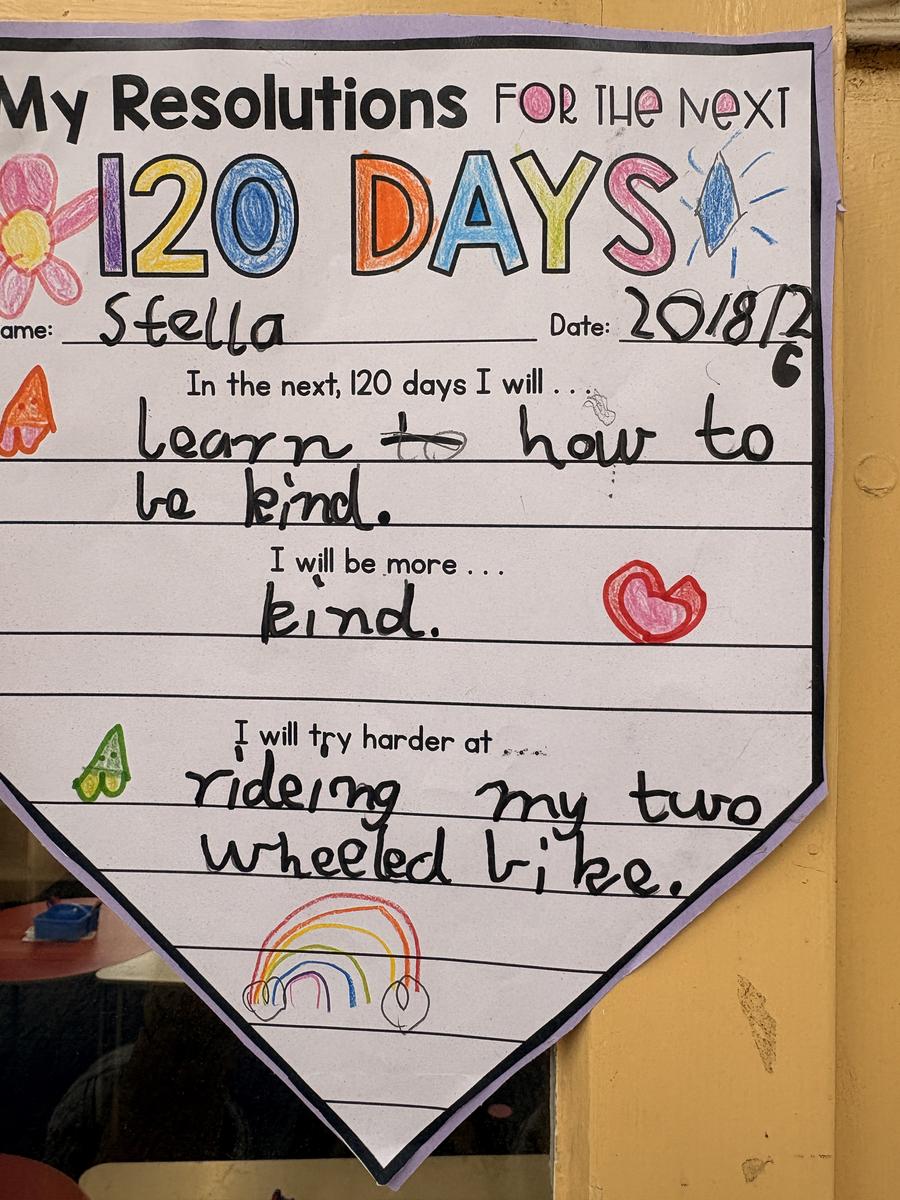 My Resolutions FOR THE NEXT
120 DAYS
ame: Stella Date: 20/8/2
6
In the next, 120 days I will . . .
learn to how to
be kind.
I will be more . . .
kind.
I will try harder at ....
rideing my two
wheeled bike.